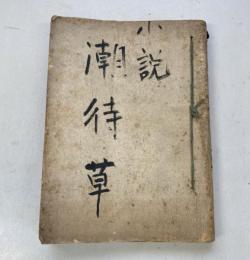 小説
潮待草